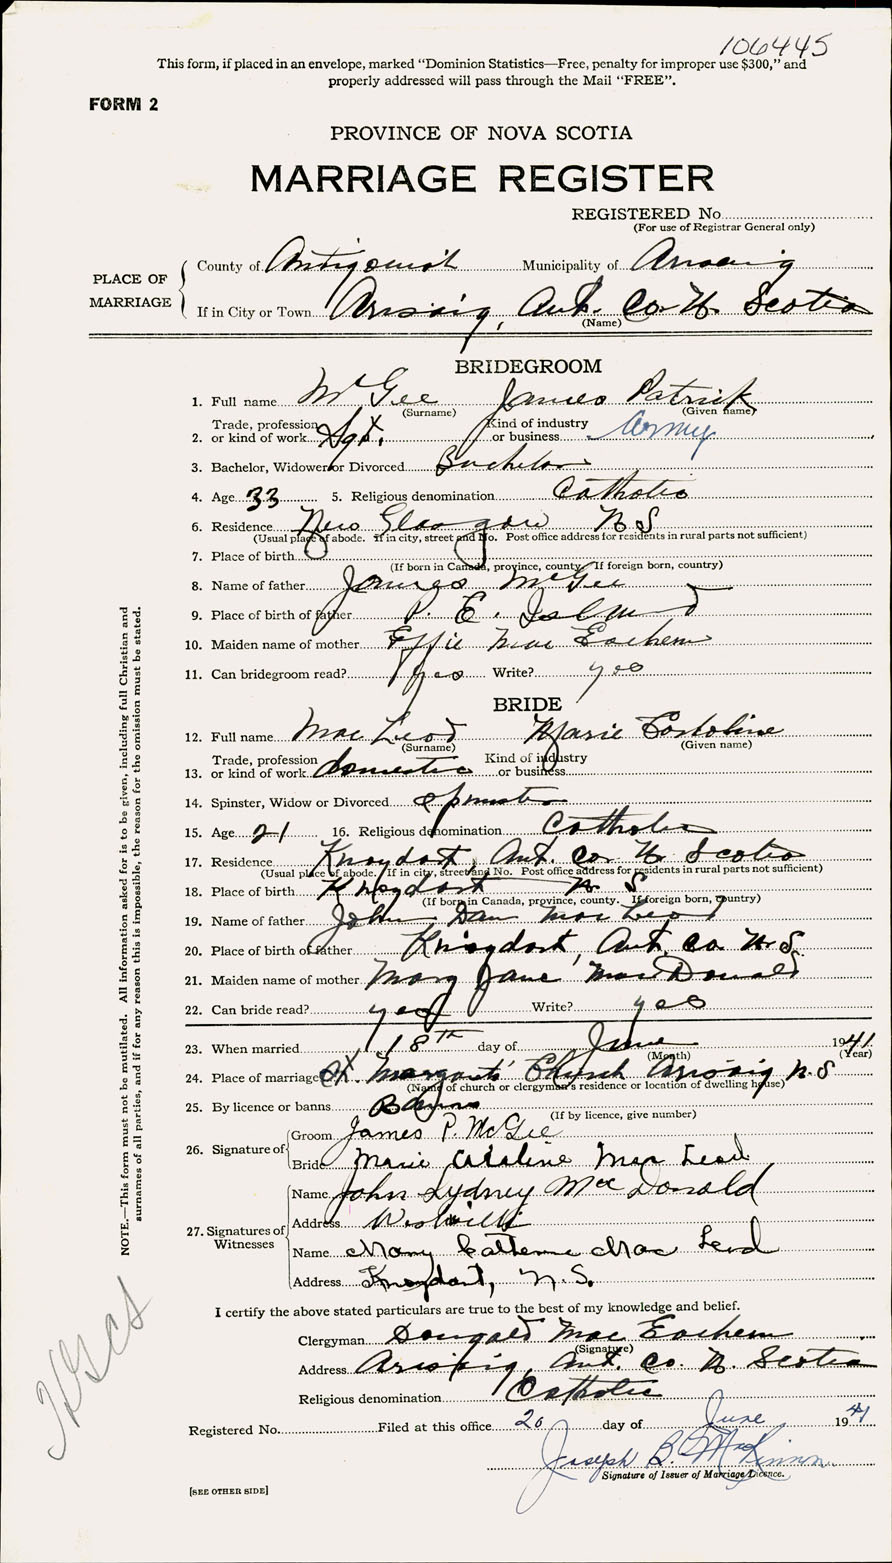 106445
This form, if placed in an envelope, marked “Dominion Statistics—Free, penalty for improper use $300,” and
properly addressed will pass through the Mail “FREE”.
FORM 2
PROVINCE OF NOVA SCOTIA
MARRIAGE REGISTER
REGISTERED No.
(For use of Registrar General only)
PLACE OF MARRIAGE
County of Antigonish Municipality of Arisaig
If in City or Town Arisaig, Ant. Co. N. Scotia
(Name)
BRIDEGROOM
1. Full name McGee James Patrick
(Surname) (Given name)
2. Trade, profession or kind of work Sgt. Kind of industry or business Army
3. Bachelor, Widower or Divorced Bachelor
4. Age 33 5. Religious denomination Catholic
6. Residence New Glasgow N S
(Usual place of abode. If in city, street and No. Post office address for residents in rural parts not sufficient)
7. Place of birth
(If born in Canada, province, county. If foreign born, country)
8. Name of father James McGee
9. Place of birth of father P. E. Island
10. Maiden name of mother Effie Mac Eachern
11. Can bridegroom read? yes Write? yes
BRIDE
12. Full name Mac Leod Marie
(Surname) (Given name)
13. Trade, profession or kind of work domestic Kind of industry or business
14. Spinster, Widow or Divorced Spinster
15. Age 21 16. Religious denomination Catholic
17. Residence Knoydart, Ant. Co. N. Scotia
(Usual place of abode. If in city, street and No. Post office address for residents in rural parts not sufficient)
18. Place of birth Knoydart N S
(If born in Canada, province, county. If foreign born, country)
19. Name of father John Dan Mac Leod
20. Place of birth of father Knoydart, Ant. Co. N. S.
21. Maiden name of mother Mary Jane Mac Donald
22. Can bride read? yes Write? yes
23. When married 18th day of June 1941
(Month) (Year)
24. Place of marriage St. Margarets' Church Arisaig N. S
(Name of church or clergyman's residence or location of dwelling house)
25. By licence or banns Banns
(If by licence, give number)
26. Signature of
Groom James P. McGee
Bride Marie Cataline Mac Leod
27. Signatures of Witnesses
Name John Sydney MacDonald
Address Westville
Name Mary Catherine Mac Leod
Address Knoydart, N.S.
I certify the above stated particulars are true to the best of my knowledge and belief.
Clergyman Dougald Mac Eachern
(Signature)
Address Arisaig, Ant. Co. N. Scotia
Religious denomination Catholic
Registered No. Filed at this office 20 day of June 1941
Joseph B. McKinnon
Signature of Issuer of Marriage Licence.
[SEE OTHER SIDE]
NOTE.—This form must not be mutilated. All information asked for is to be given, including full Christian and
surnames of all parties, and if for any reason this is impossible, the reason for the omission must be stated.